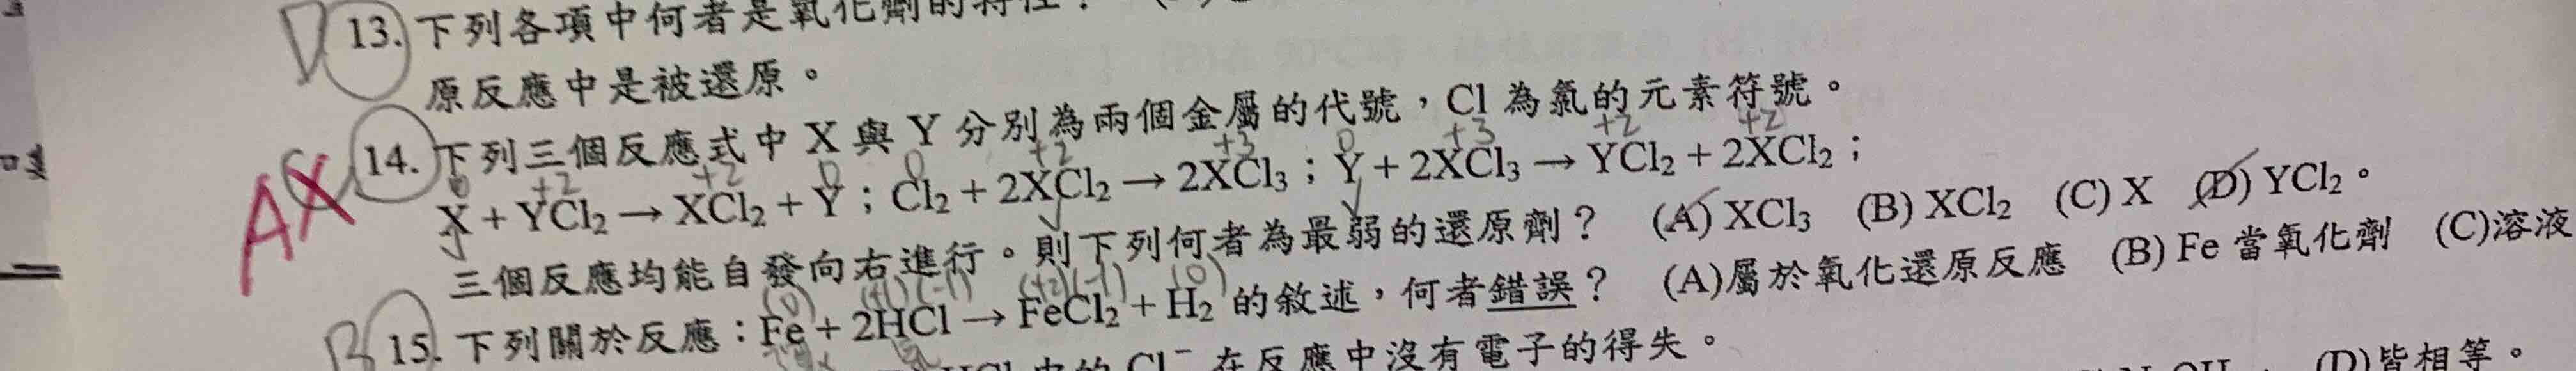 D 13. 下列各項中何者是氧化劑的特性？
原反應中是被還原。
AX 14. 下列三個反應式中 X 與 Y 分別為兩個金屬的代號，Cl 為氯的元素符號。
0 +2 +2 0 0 +2 +3 0 +3 +2 +2
X + YCl₂ → XCl₂ + Y；Cl₂ + 2XCl₂ → 2XCl₃；Y + 2XCl₃ → YCl₂ + 2XCl₂；
三個反應均能自發向右進行。則下列何者為最弱的還原劑？ (A) XCl₃ (B) XCl₂ (C) X (D) YCl₂。
(0) (+1)(-1) (+2)(-1) (0)
B 15. 下列關於反應：Fe + 2HCl → FeCl₂ + H₂ 的敘述，何者錯誤？ (A)屬於氧化還原反應 (B) Fe 當氧化劑 (C)溶液
HCl 中的 Cl⁻ 在反應中沒有電子的得失。
(D)皆相等。